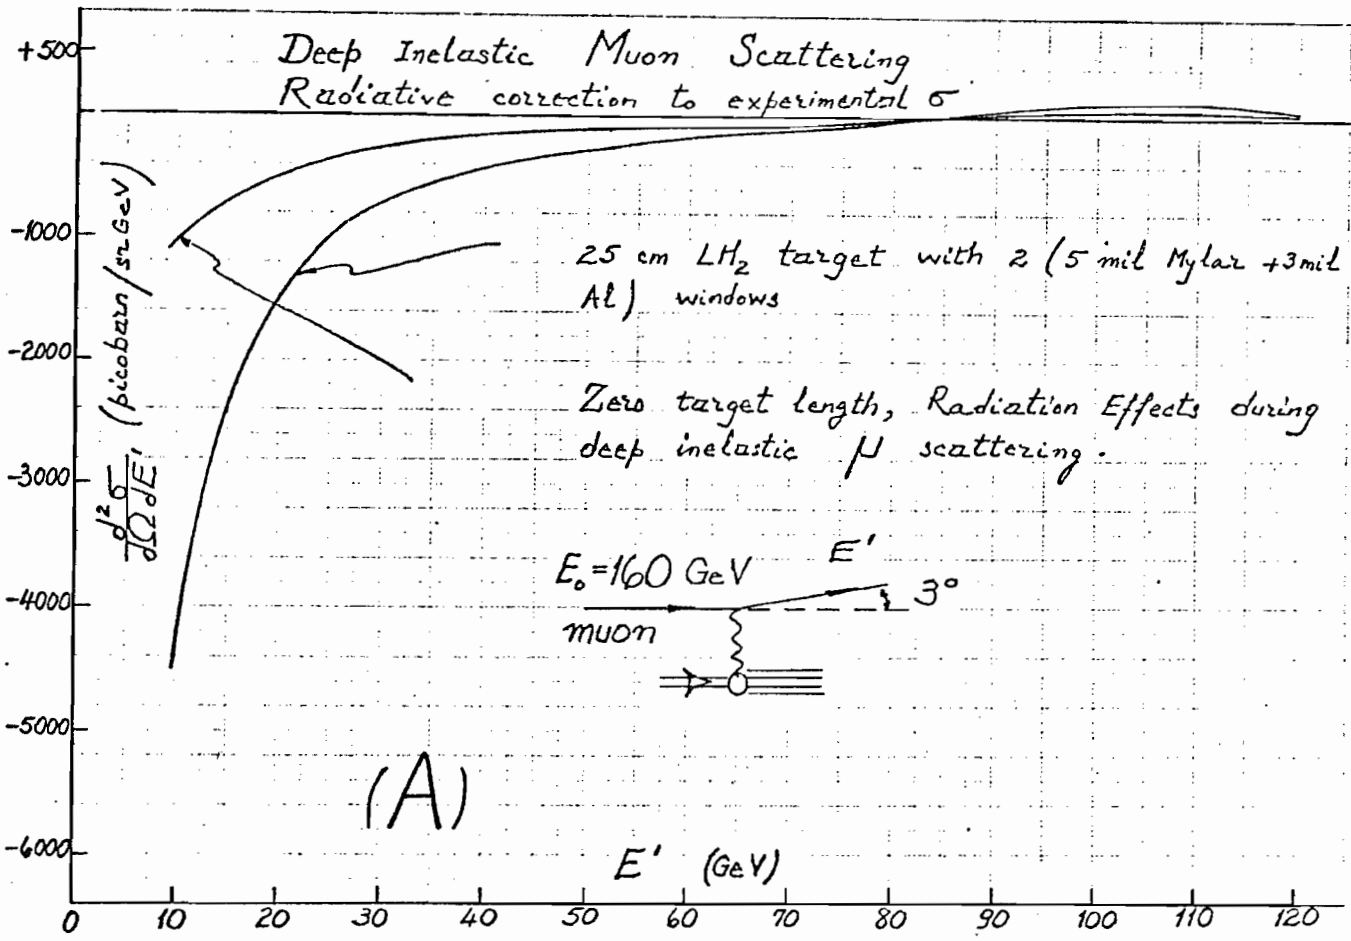 Deep Inelastic Muon Scattering
Radiative correction to experimental σ
+500
-1000
-2000
-3000
-4000
-5000
-6000
d²σ/dΩdE' (picobarn/sr GeV)
25 cm LH₂ target with 2 (5 mil Mylar +3mil
Al) windows
Zero target length, Radiation Effects during
deep inelastic μ scattering.
E₀=160 GeV
E'
3°
muon
(A)
E' (GeV)
0 10 20 30 40 50 60 70 80 90 100 110 120